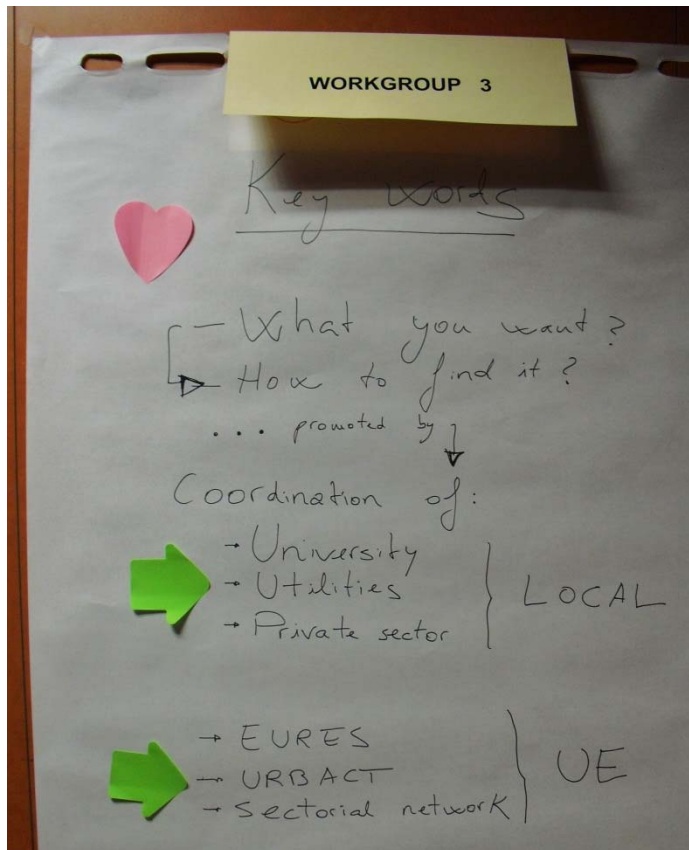 WORKGROUP 3
Key words
- What you want?
- How to find it?
... promoted by
Coordination of:
→ University
→ Utilities
→ Private sector
LOCAL
→ EURES
→ URBACT
→ Sectorial network
UE